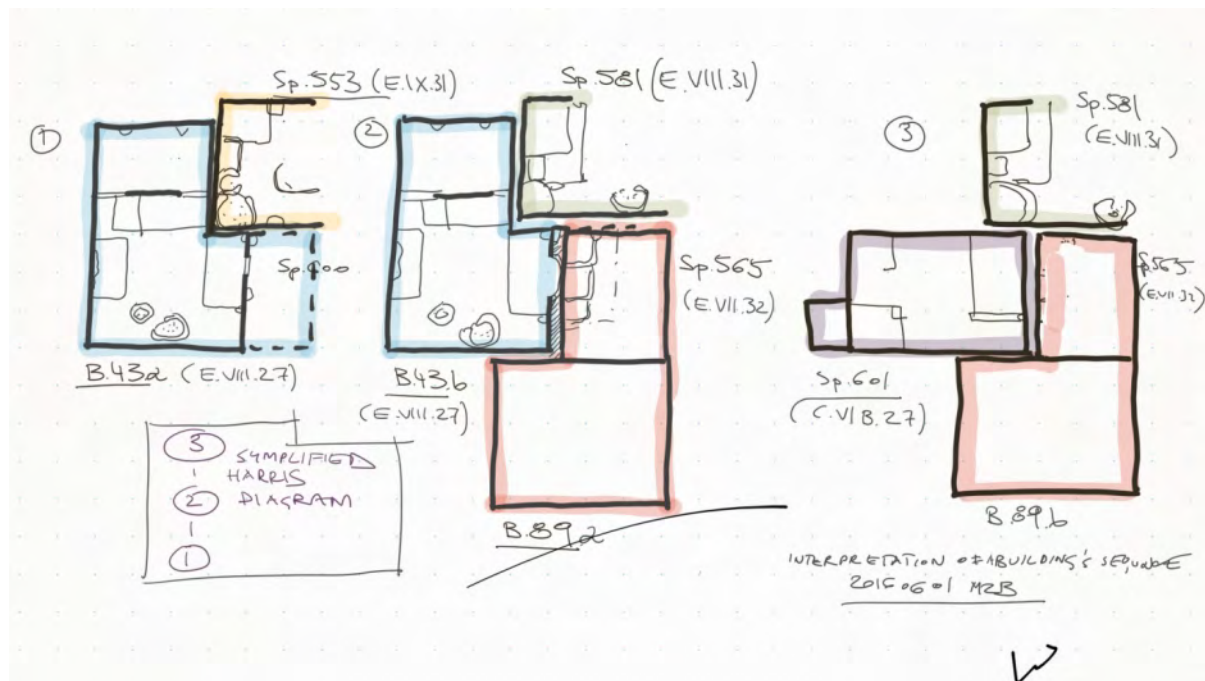 ①
Sp.553 (E.IX.31)
Sp.600
B.43a (E.VIII.27)
②
Sp.581 (E.VIII.31)
Sp.565
(E.VII.32)
B.43.b
(E.VIII.27)
B.89.a
③
Sp.581
(E.VIII.31)
Sp.565
(E.VII.32)
Sp.601
(C.VIB.27)
B.89.b
3
2
1
SYMPLIFIED
HARRIS
DIAGRAM
INTERPRETATION OF A BUILDING'S SEQUENCE